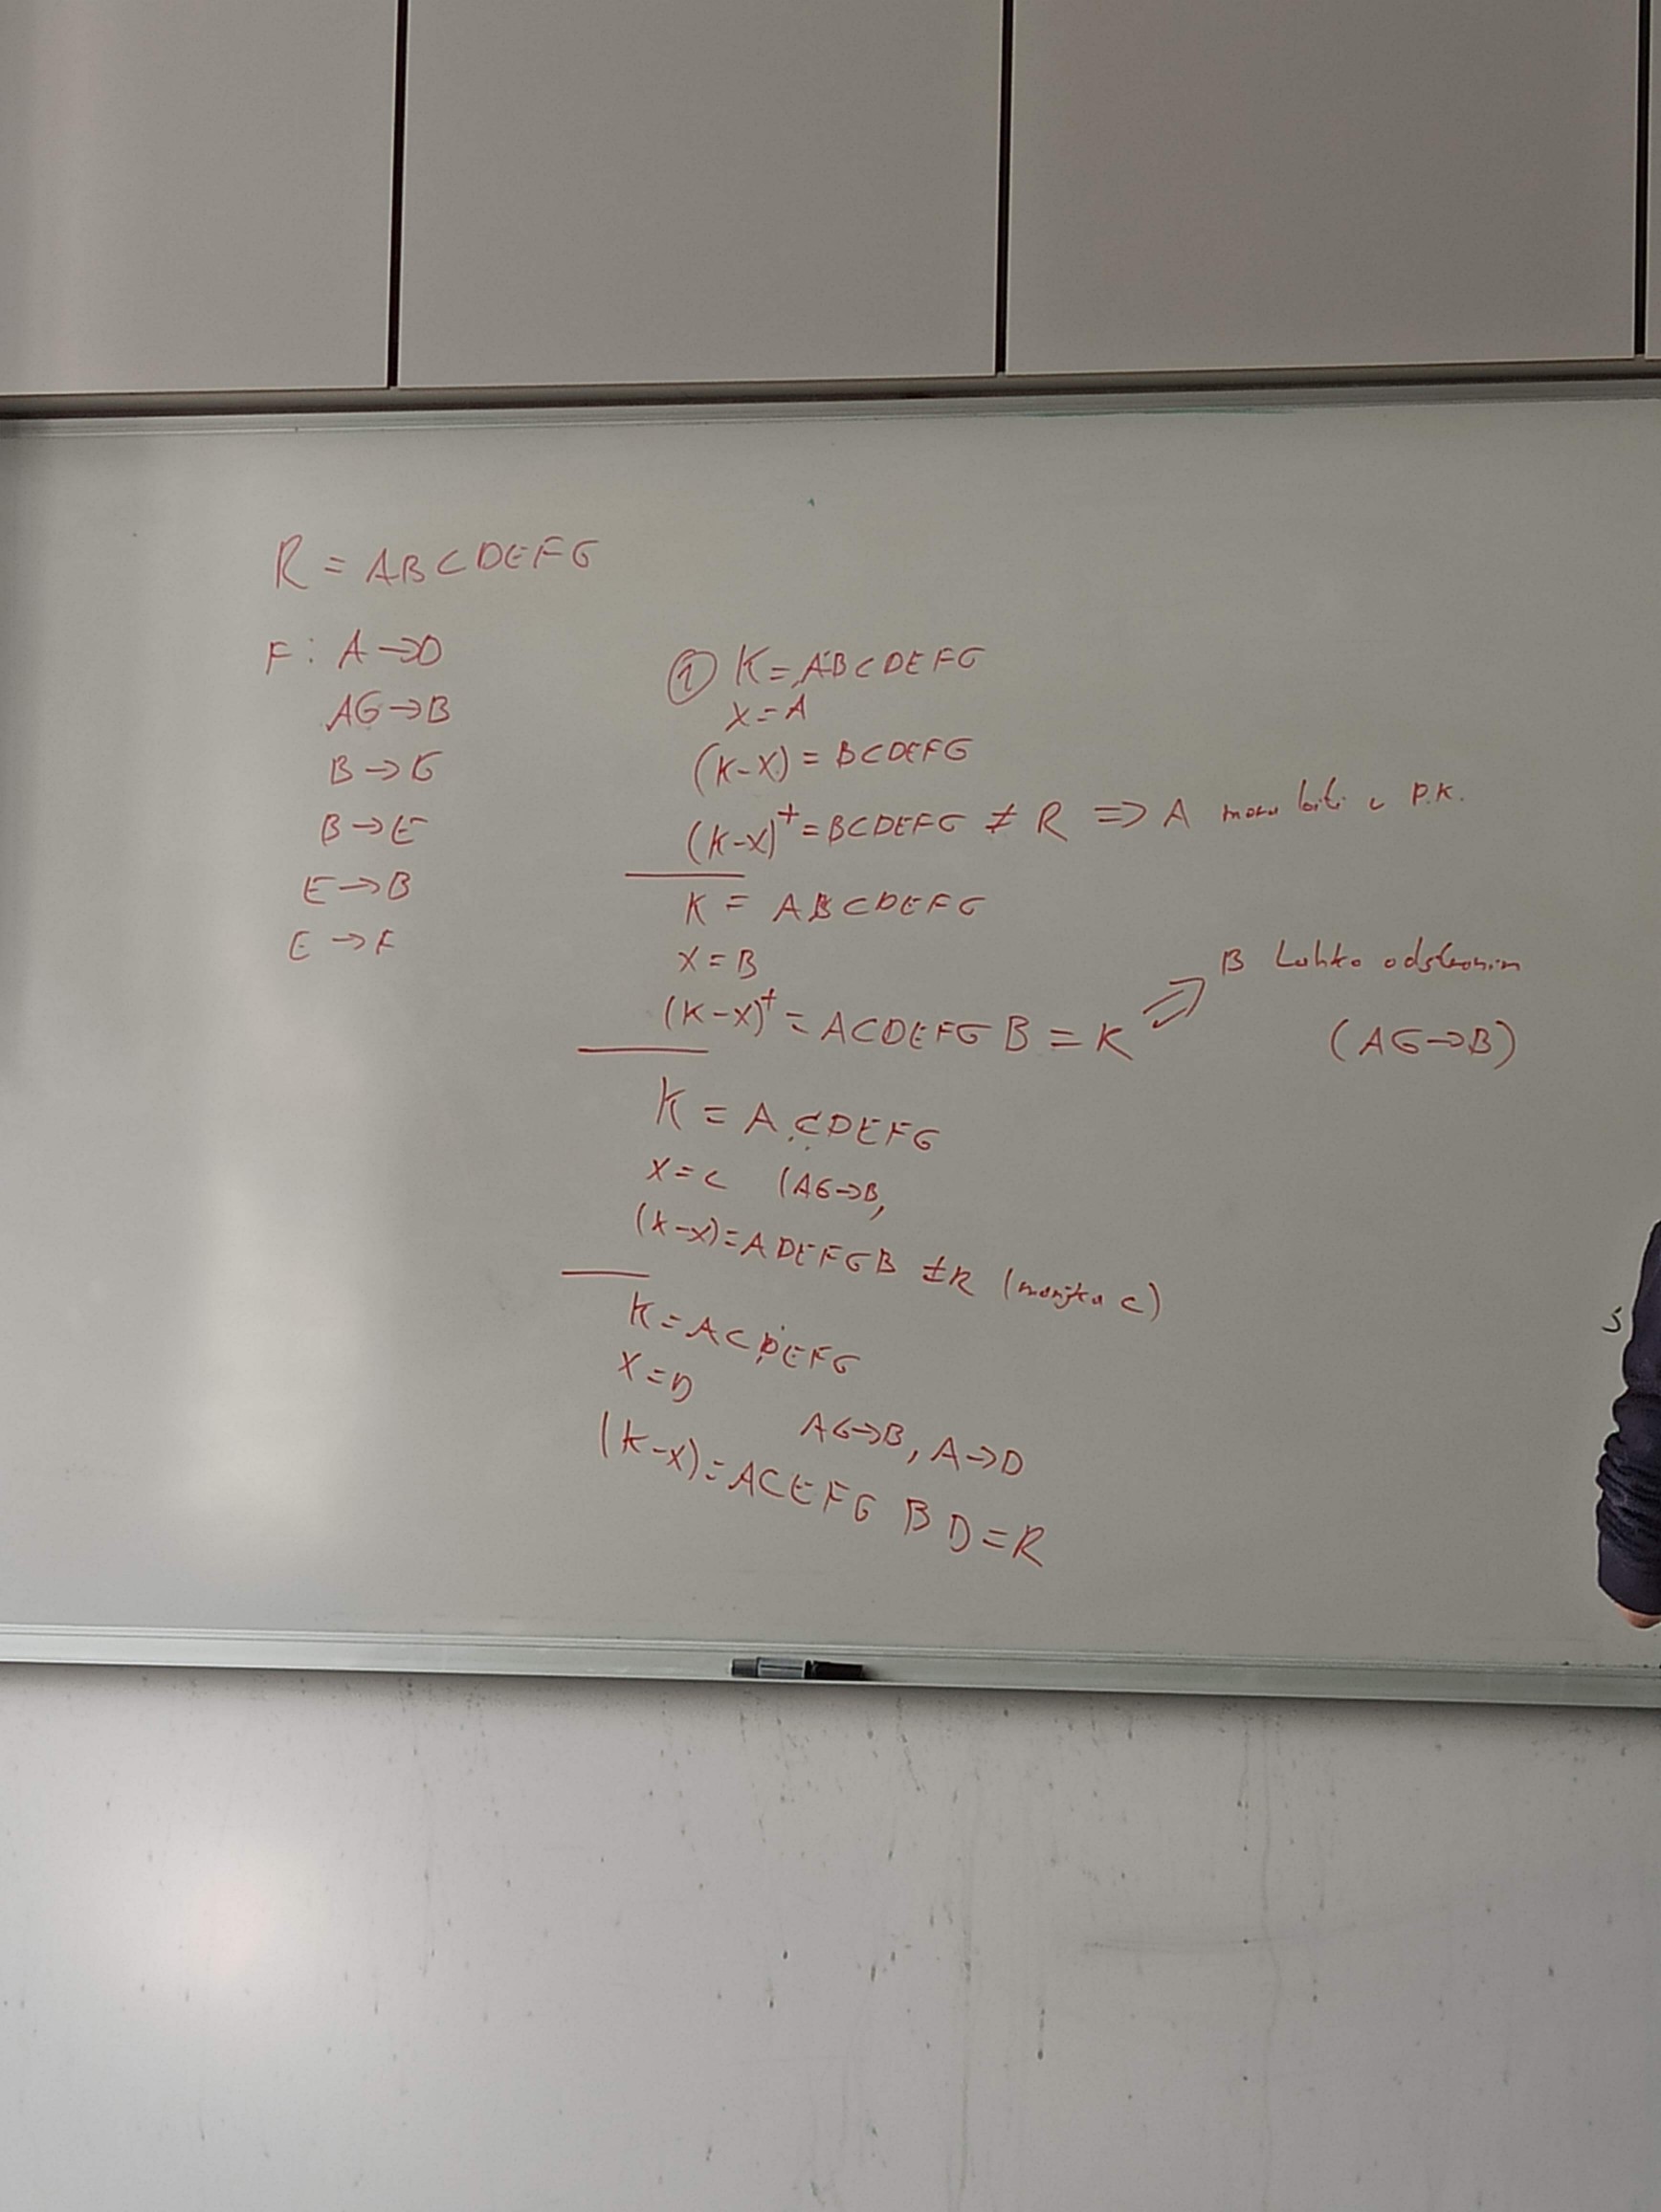 R = ABCDEFG
F: A→D
AG→B
B→G
B→E
E→B
E→F
① K = ABCDEFG
X = A
(K-X) = BCDEFG
(K-X)⁺ = BCDEFG ≠ R ⇒ A mora biti v P.K.
K = ABCDEFG
X = B
(K-X)⁺ = ACDEFG B = K ⇒ B Lahko odstranim
(AG→B)
K = ACDEFG
X = C (AG→B,
(K-X) = ADEFGB ≠ R (manjka C)
K = ACDEFG
X = D
AG→B, A→D
(K-X) = ACEFG B D = R